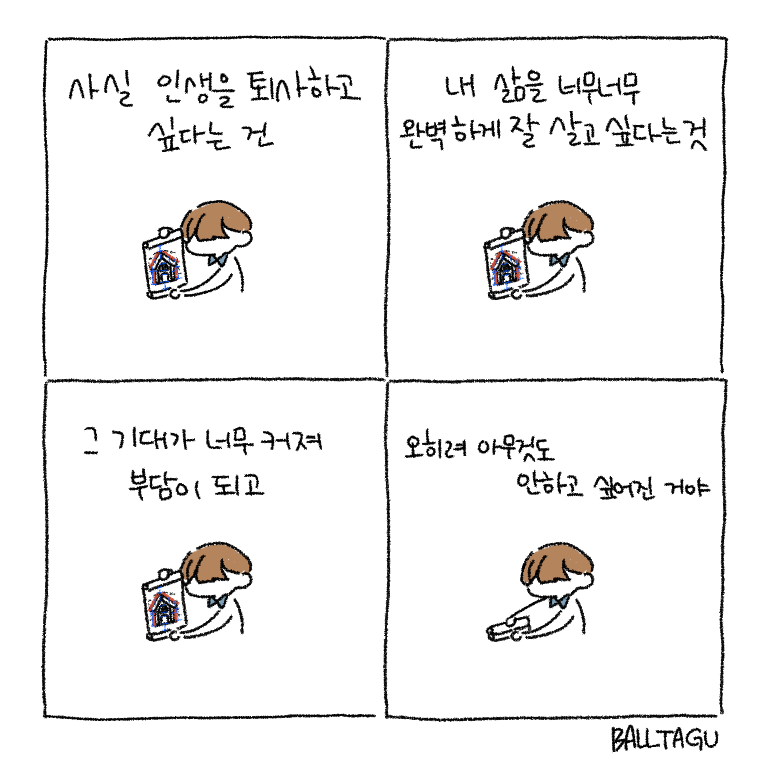 사실 인생을 퇴사하고
싶다는 건
내 삶을 너무너무
완벽하게 잘 살고 싶다는 것
그 기대가 너무 커져
부담이 되고
오히려 아무것도
안하고 싶어진 거야
BALLTAGU